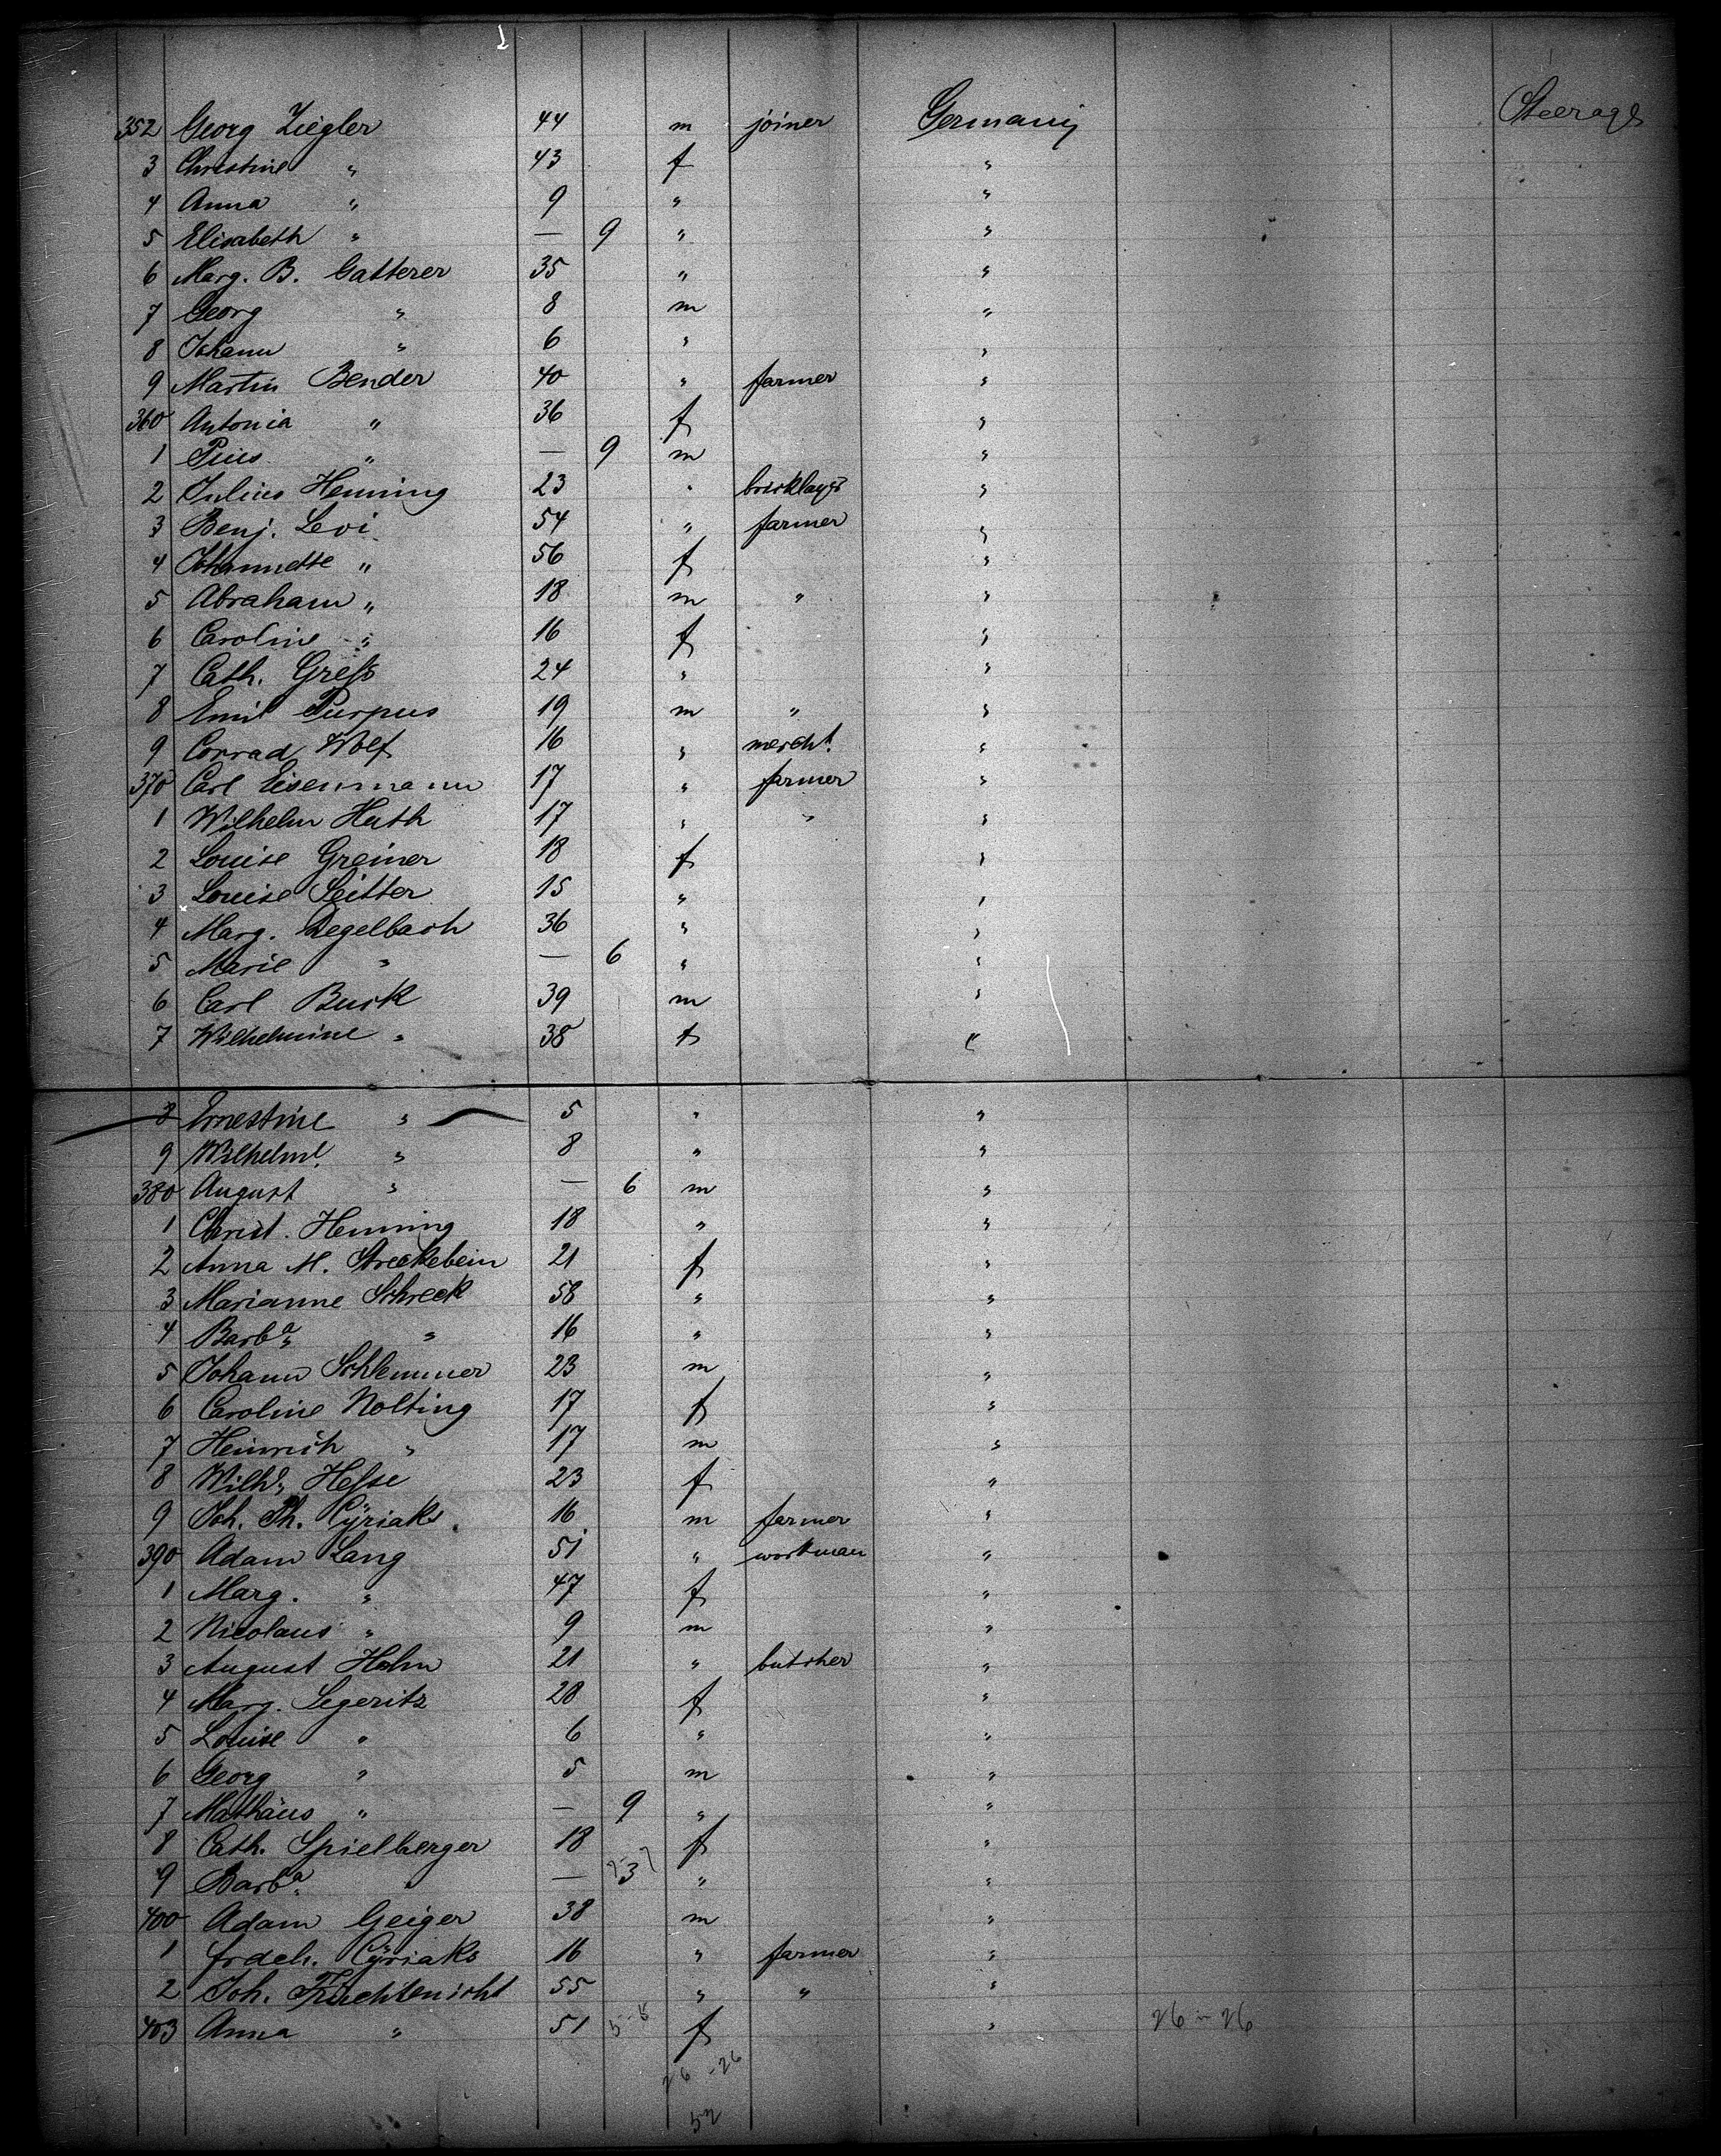 352 Georg Ziegler 44 m joiner Germany Steerage
3 Christine " 43 f "
4 Anna " 9 " "
5 Elisabeth " — 9 " "
6 Marg. B. Gatterer 35 " "
7 Georg " 8 m "
8 Johann " 6 " "
9 Martin Bender 40 " farmer "
360 Antonia " 36 f "
1 Pius " — 9 m "
2 Julius Henning 23 " bricklayer "
3 Benj. Levi 54 " farmer "
4 Johannette " 56 f "
5 Abraham " 18 m " "
6 Caroline " 16 f "
7 Cath. Greſs 24 " "
8 Emil Purpus 19 m " "
9 Conrad Wolf 16 " mercht. "
370 Carl Eisenmann 17 " farmer "
1 Wilhelm Huth 17 " " "
2 Louise Greiner 18 f "
3 Louise Seitter 15 " "
4 Marg. Degelbach 36 " "
5 Marie " — 6 " "
6 Carl Burk 39 m "
7 Wilhelmine " 38 f "
8 Ernestine " 5 " "
9 Wilhelme. " 8 " "
380 August " — 6 m "
1 Christ. Henning 18 " "
2 Anna M. Streckebein 21 f "
3 Marianne Schreck 58 " "
4 Barba. " 16 " "
5 Johann Schlemmer 23 m "
6 Caroline Nolting 17 f "
7 Heinrich " 17 m "
8 Wilhe. Heſse 23 f "
9 Joh. Th. Cÿriaks. 16 m farmer "
390 Adam Lang 51 " workman "
1 Marg. " 47 f "
2 Nicolaus " 9 m "
3 August Holm 21 " butcher "
4 Marg. Segeritz 28 f "
5 Louise " 6 " "
6 Georg " 5 m "
7 Mathäus " — 9 " "
8 Cath. Spielberger 18 f "
9 Barba. " — 3 " "
400 Adam Geiger 38 m "
1 Frdch. Cÿriaks 16 " farmer "
2 Joh. Fürchtenicht 55 " " "
403 Anna " 51 5-8 f " 26-26
26-26
52